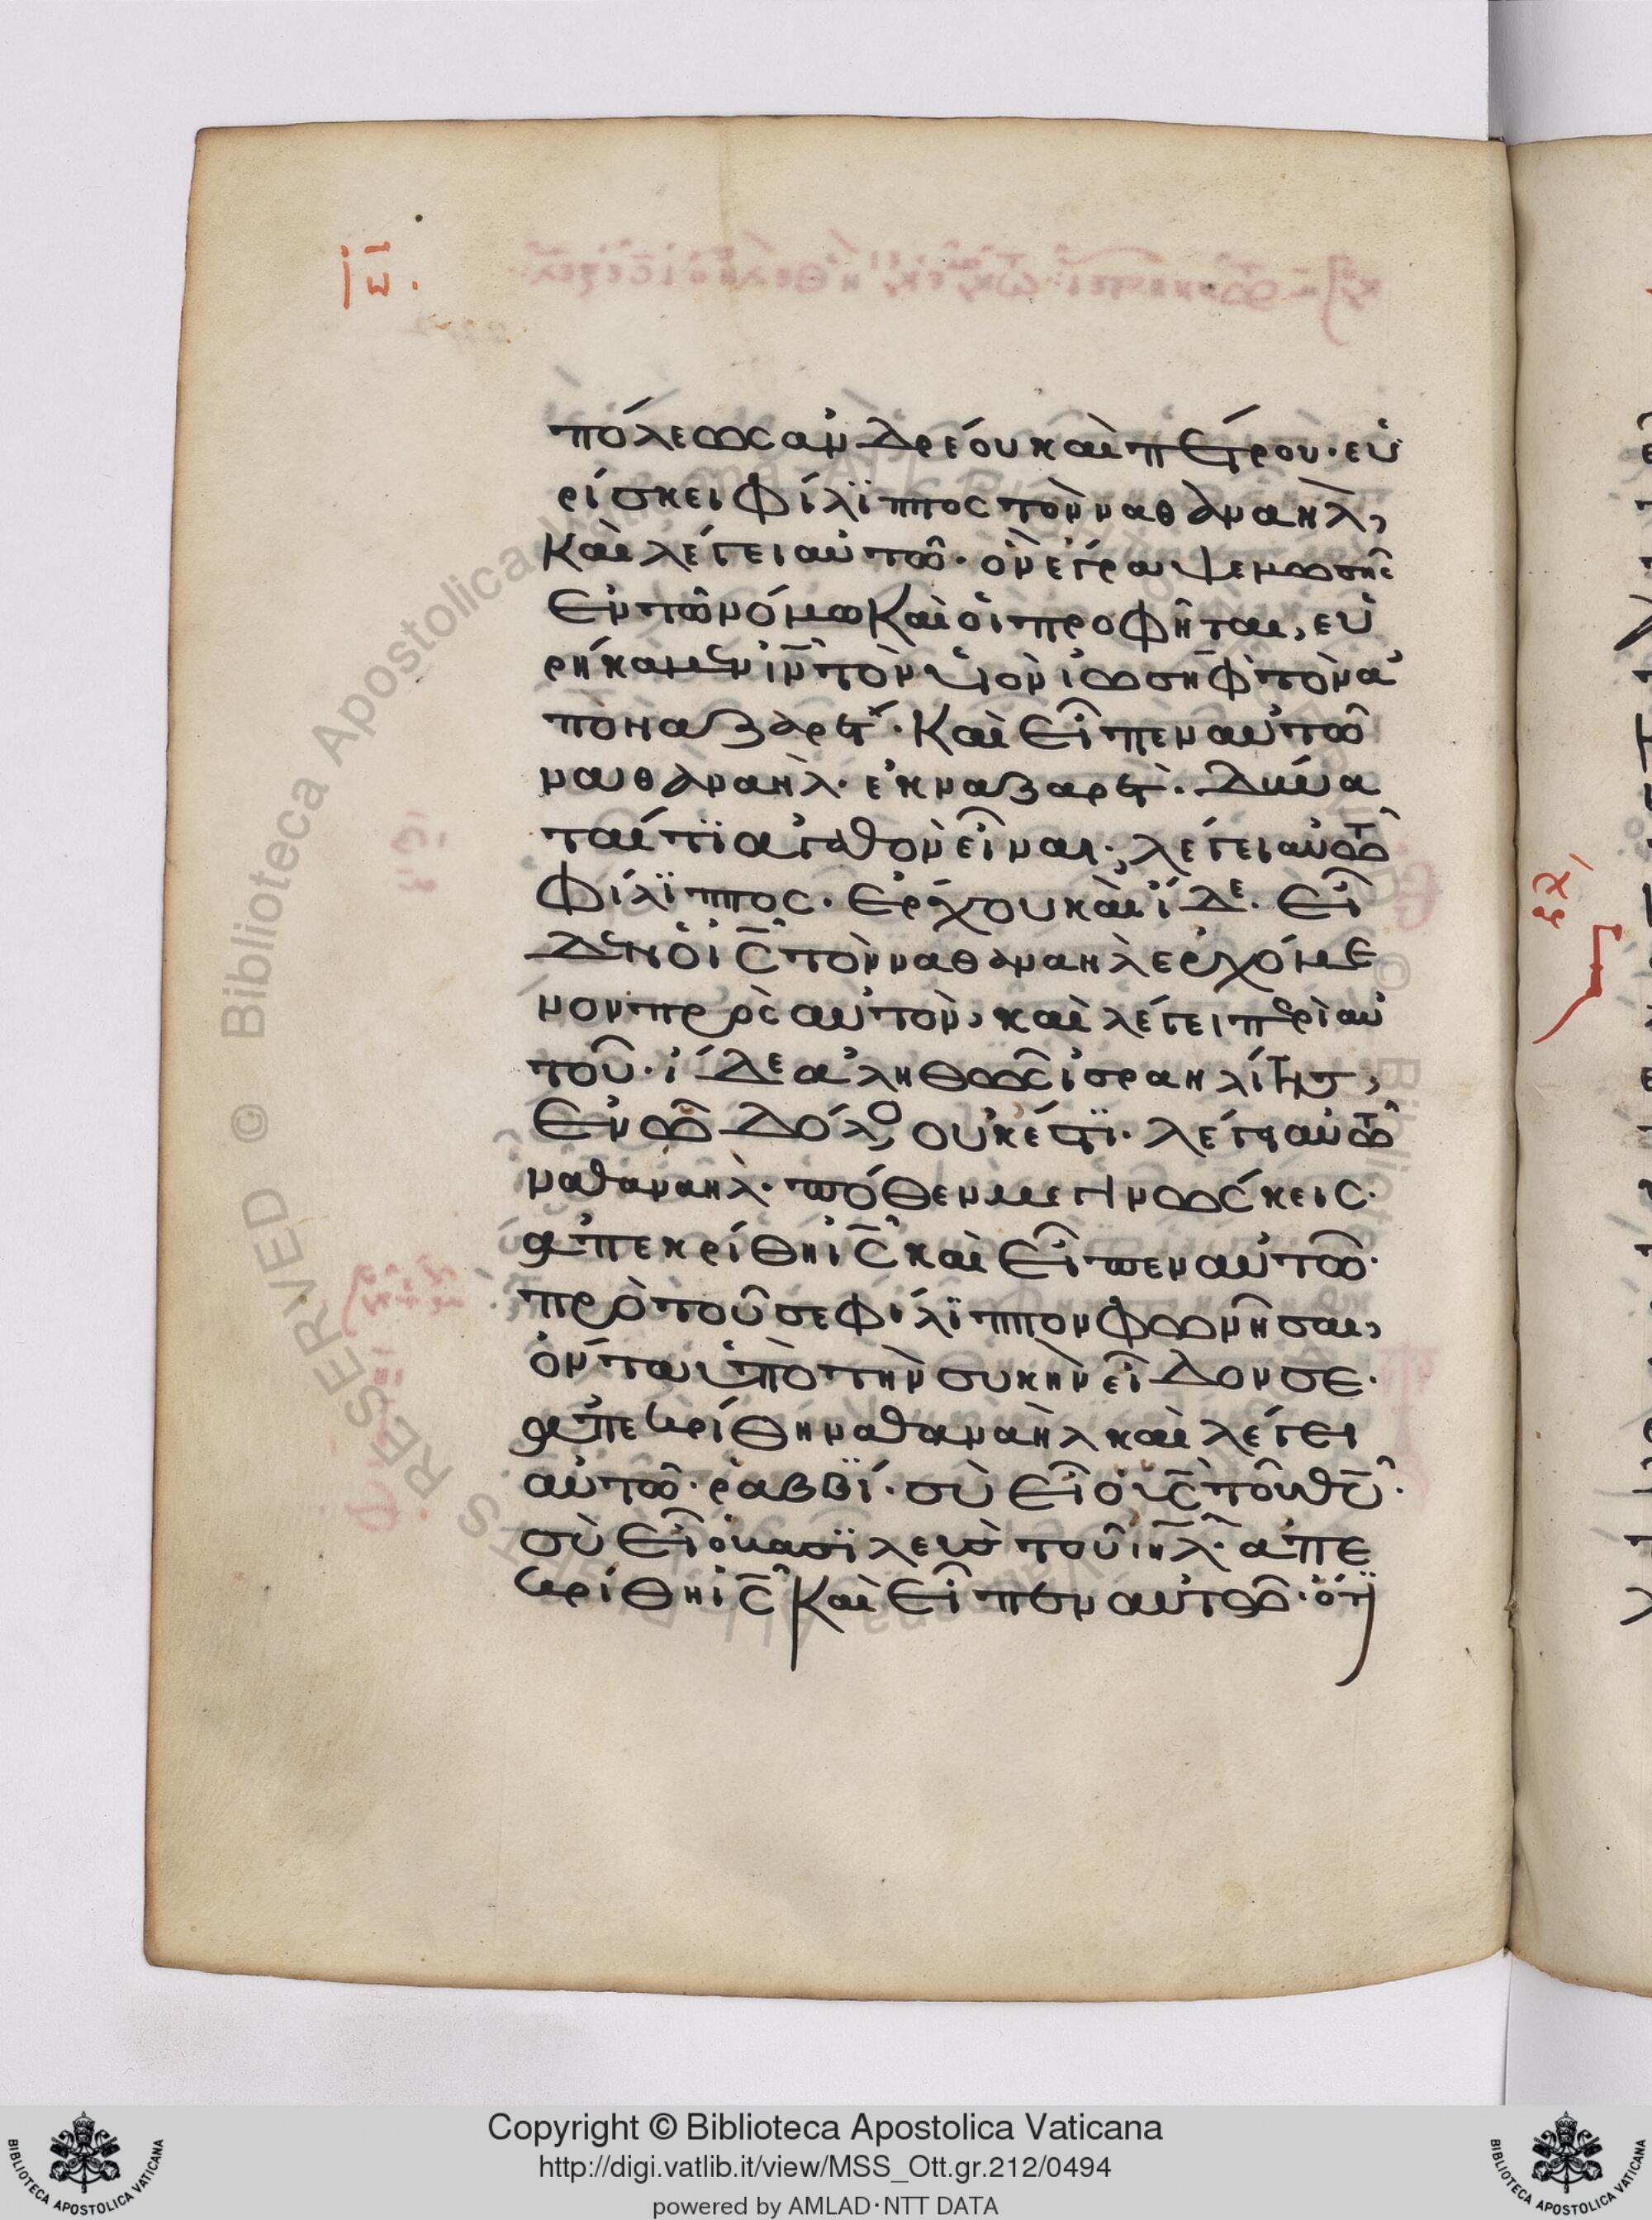 πόλεως ἀνδρέου καὶ πέτρου· εὑ
ρίσκει φίλϊππος τὸν ναθαναὴλ,
καὶ λέγει αὐτῶ· ὃν ἔγραψε μωσῆς
ἐν τῶ νόμω καὶ οἱ προφῆται, εὑ
ρήκαμεν ἰν̅ τὸν υἱὸν ἰωσὴφ τὸν ἀ
πὸ ναζαρέτ· καὶ εἶπεν αὐτῶ
ναθαναὴλ· ἐκ ναζαρὲτ· δύνα
ταί τϊ ἀγαθὸν εἶναι; λέγει αὐτῶ
φίλϊππος· ἔρχου καὶ ἴδε· εἶ
δεν ὁ ἰς̅ τὸν ναθαναὴλ ἐρχόμε
νον πρὸς αὐτὸν, καὶ λέγει περὶ αὐ
τοῦ· ἴδε ἀληθῶς ἰσραηλίτης,
ἐν ὧ δόλος οὐκ ἔστϊ· λέγει αὐτῶ
ναθαναὴλ· πόθεν με γινώσκεις·
ἀπεκρίθη ἰς̅ καὶ εἶπεν αὐτῶ·
πρὸ τοῦ σε φίλϊππον φωνῆσαι,
ὄντα ὑπὸ τὴν συκὴν εἶδον σε·
ἀπεκρίθη ναθαναὴλ καὶ λέγει
αὐτῶ· ῥαββΐ· σὺ εἶ ὁ υς̅ τοῦ θυ̅·
σὺ εἶ ὁ βασϊλεὺς τοῦ ιηλ̅· ἀπε
κρίθη ἰς̅ καὶ εἶπεν αὐτῶ· ὅτϊ
Copyright © Biblioteca Apostolica Vaticana
http://digi.vatlib.it/view/MSS_Ott.gr.212/0494
powered by AMLAD·NTT DATA
BIBLIOTECA APOSTOLICA VATICANA
BIBLIOTECA APOSTOLICA VATICANA